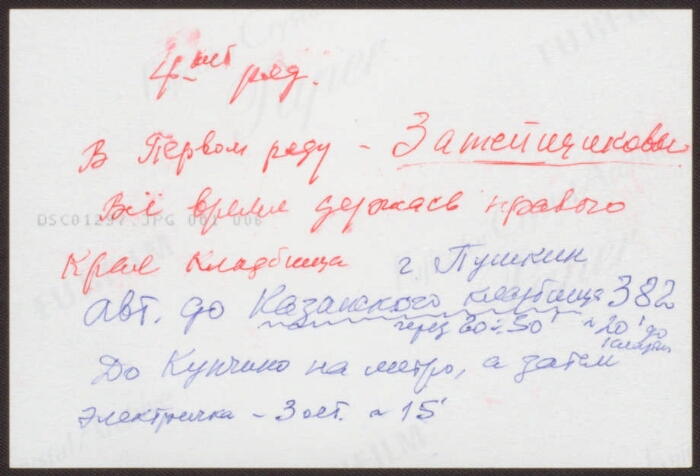 4-ый ряд.
В Первом ряду - Затейщиковы
Всё время держась правого
DSC01297.JPG 001 006
Края кладбища г. Пушкин
авт. до Казанского кладбища 382
через 30÷50' ~ 20' до
До Купчино на метро, а затем
электричка - 3 ост. ~ 15'